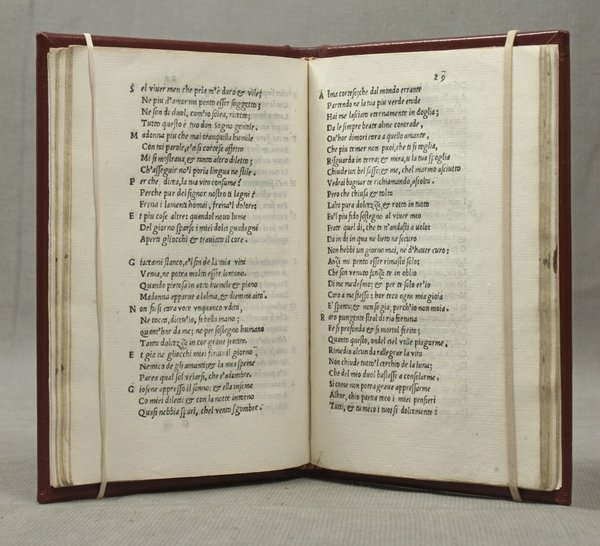 S el viuer men che pria m'è duro & vile;
Ne piu d'amor me pento esser suggetto;
Ne son di duol, com'io solea, ricetto;
Tutto questo è tuo don sogno gentile.
M adonna piu che mai tranquilla humile
Con tai parole, e'n si cortese affetto
Mi si mostraua, & tanto altro diletto;
Ch'asseguir no'l poria lingua ne stile.
P er che, dicea, la tua vita consume?
Perche pur del signor nostro ti lagni?
Frena i lamenti homai, frena'l dolore:
E t piu cose altre; quand'ol nouo lume
Del giorno sparse i miei dolci guadagni
Aperti gliocchi & trauiato il core.
G iaceami stanco, e'l fin de la mia vita
Venia, ne potea molto esser lontano.
Quando pietosa in atto humile & piano
Madonna apparue a l'alma, & diemmi aita.
N on fu si cara voce vnquanco vdita,
Ne tocca, dicea'io, si bella mano;
quant'hor da me; ne per sostegno humano
Tanta dolcezza in cor graue sentita.
E t gia ne gliocchi miei feriua il giorno
Nemico de gliamanti; & la mia speme
Parea qual sol velarsi, che s'adombre.
G iosene appresso il sonno: & ella insieme
Co miei diletti & con la notte intorno
Quasi nebbia spari, che'l vento sgombre.
29
A lma cortese; che dal mondo errante
Partendo ne la tua piu verde etade
Hai me lasciato eternamente in doglia;
Da le sempre beate alme contrade,
Ou'hor dimori cara a quello amante,
Che piu temer non puoi, che ti si toglia,
Risguarda in terra; & mira, u la tua spoglia
Chiude un bel sasso; & me, che'l marmo asciutto
Vedrai bagnar te richiamando, ascolta.
Pero che chiusa & tolta
L'alta pura dolcezza, & rotto in tutto
Fu'l piu fido sostegno al viuer mio
Frate quel di, che te n'andasti a uolo:
Da indi in qua ne lieto ne securo
Non hebbi un giorno mai, ne d'hauer curo:
Anzi me pento esser rimaso solo:
Che son venuto senza te in oblio
Di me medesmo; & per te sol er'io
Caro a me stesso: hor teco ogni mia gioia
E' spenta; & non so gia, perch'io non moia.
R aro pungente stral di ria fortuna
Fe si profonda & si mortal ferita;
Quanto questo, onde'l ciel volle piagarme.
Rimedio alcun da rallegrar la vita
Non chiude tutto'l cerchio de la luna;
Che del mio duol bastasse a consolarme.
Si come non potea graue appressarme
Alhor, ch'io partia teco i miei pensieri
Tutti, & tu meco i tuoi si dolcemente: